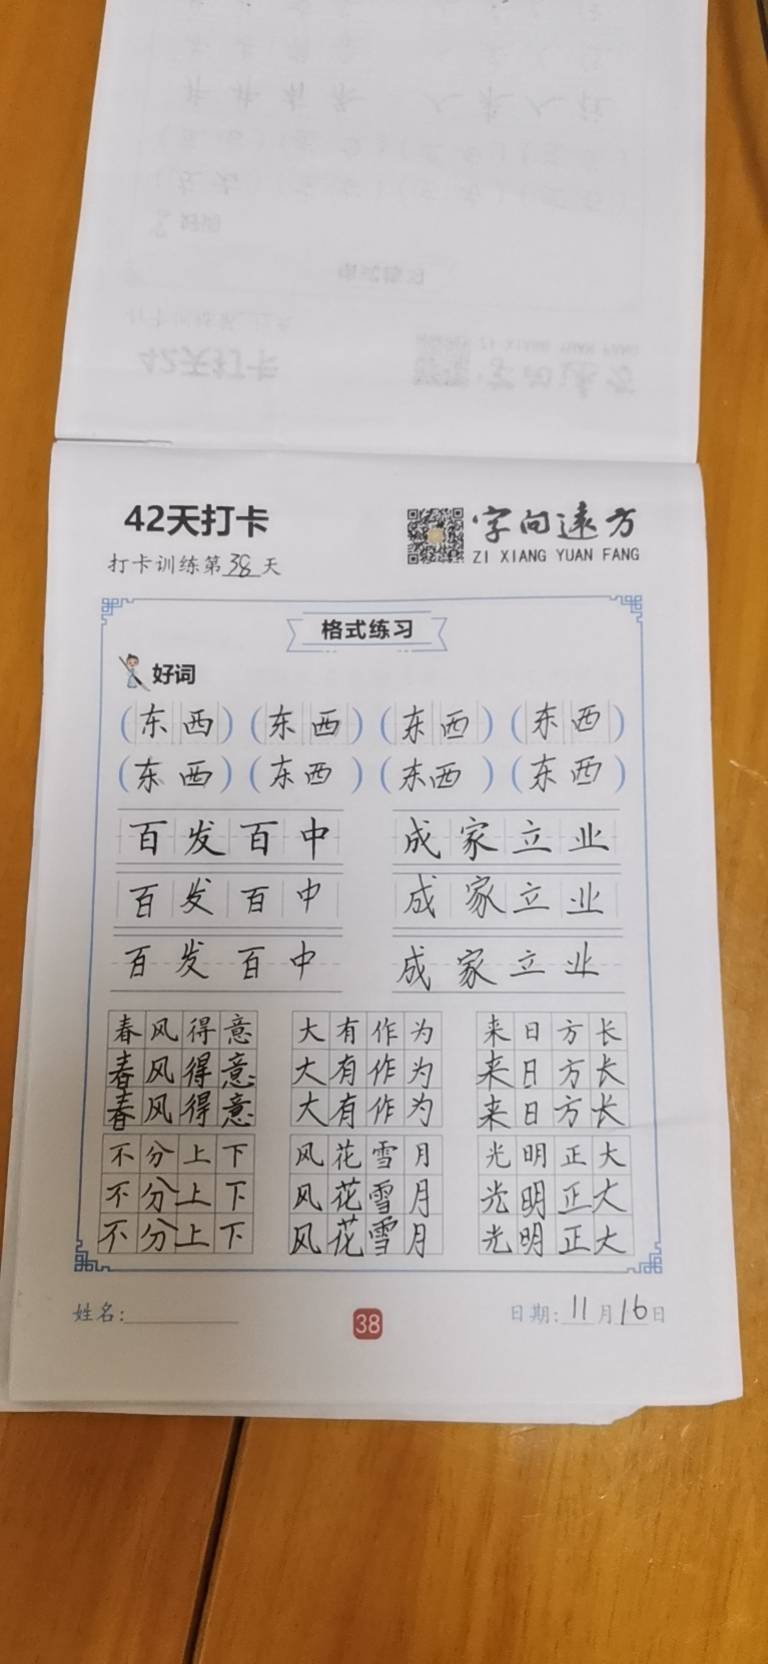 42天打卡
字向远方
ZI XIANG YUAN FANG
打卡训练第38天
格式练习
好词
(东西)(东西)(东西)(东西)
(东西)(东西)(东西)(东西)
百发百中 成家立业
百发百中 成家立业
百发百中 成家立业
春风得意 大有作为 来日方长
春风得意 大有作为 来日方长
春风得意 大有作为 来日方长
不分上下 风花雪月 光明正大
不分上下 风花雪月 光明正大
不分上下 风花雪月 光明正大
姓名: 38 日期:11月16日